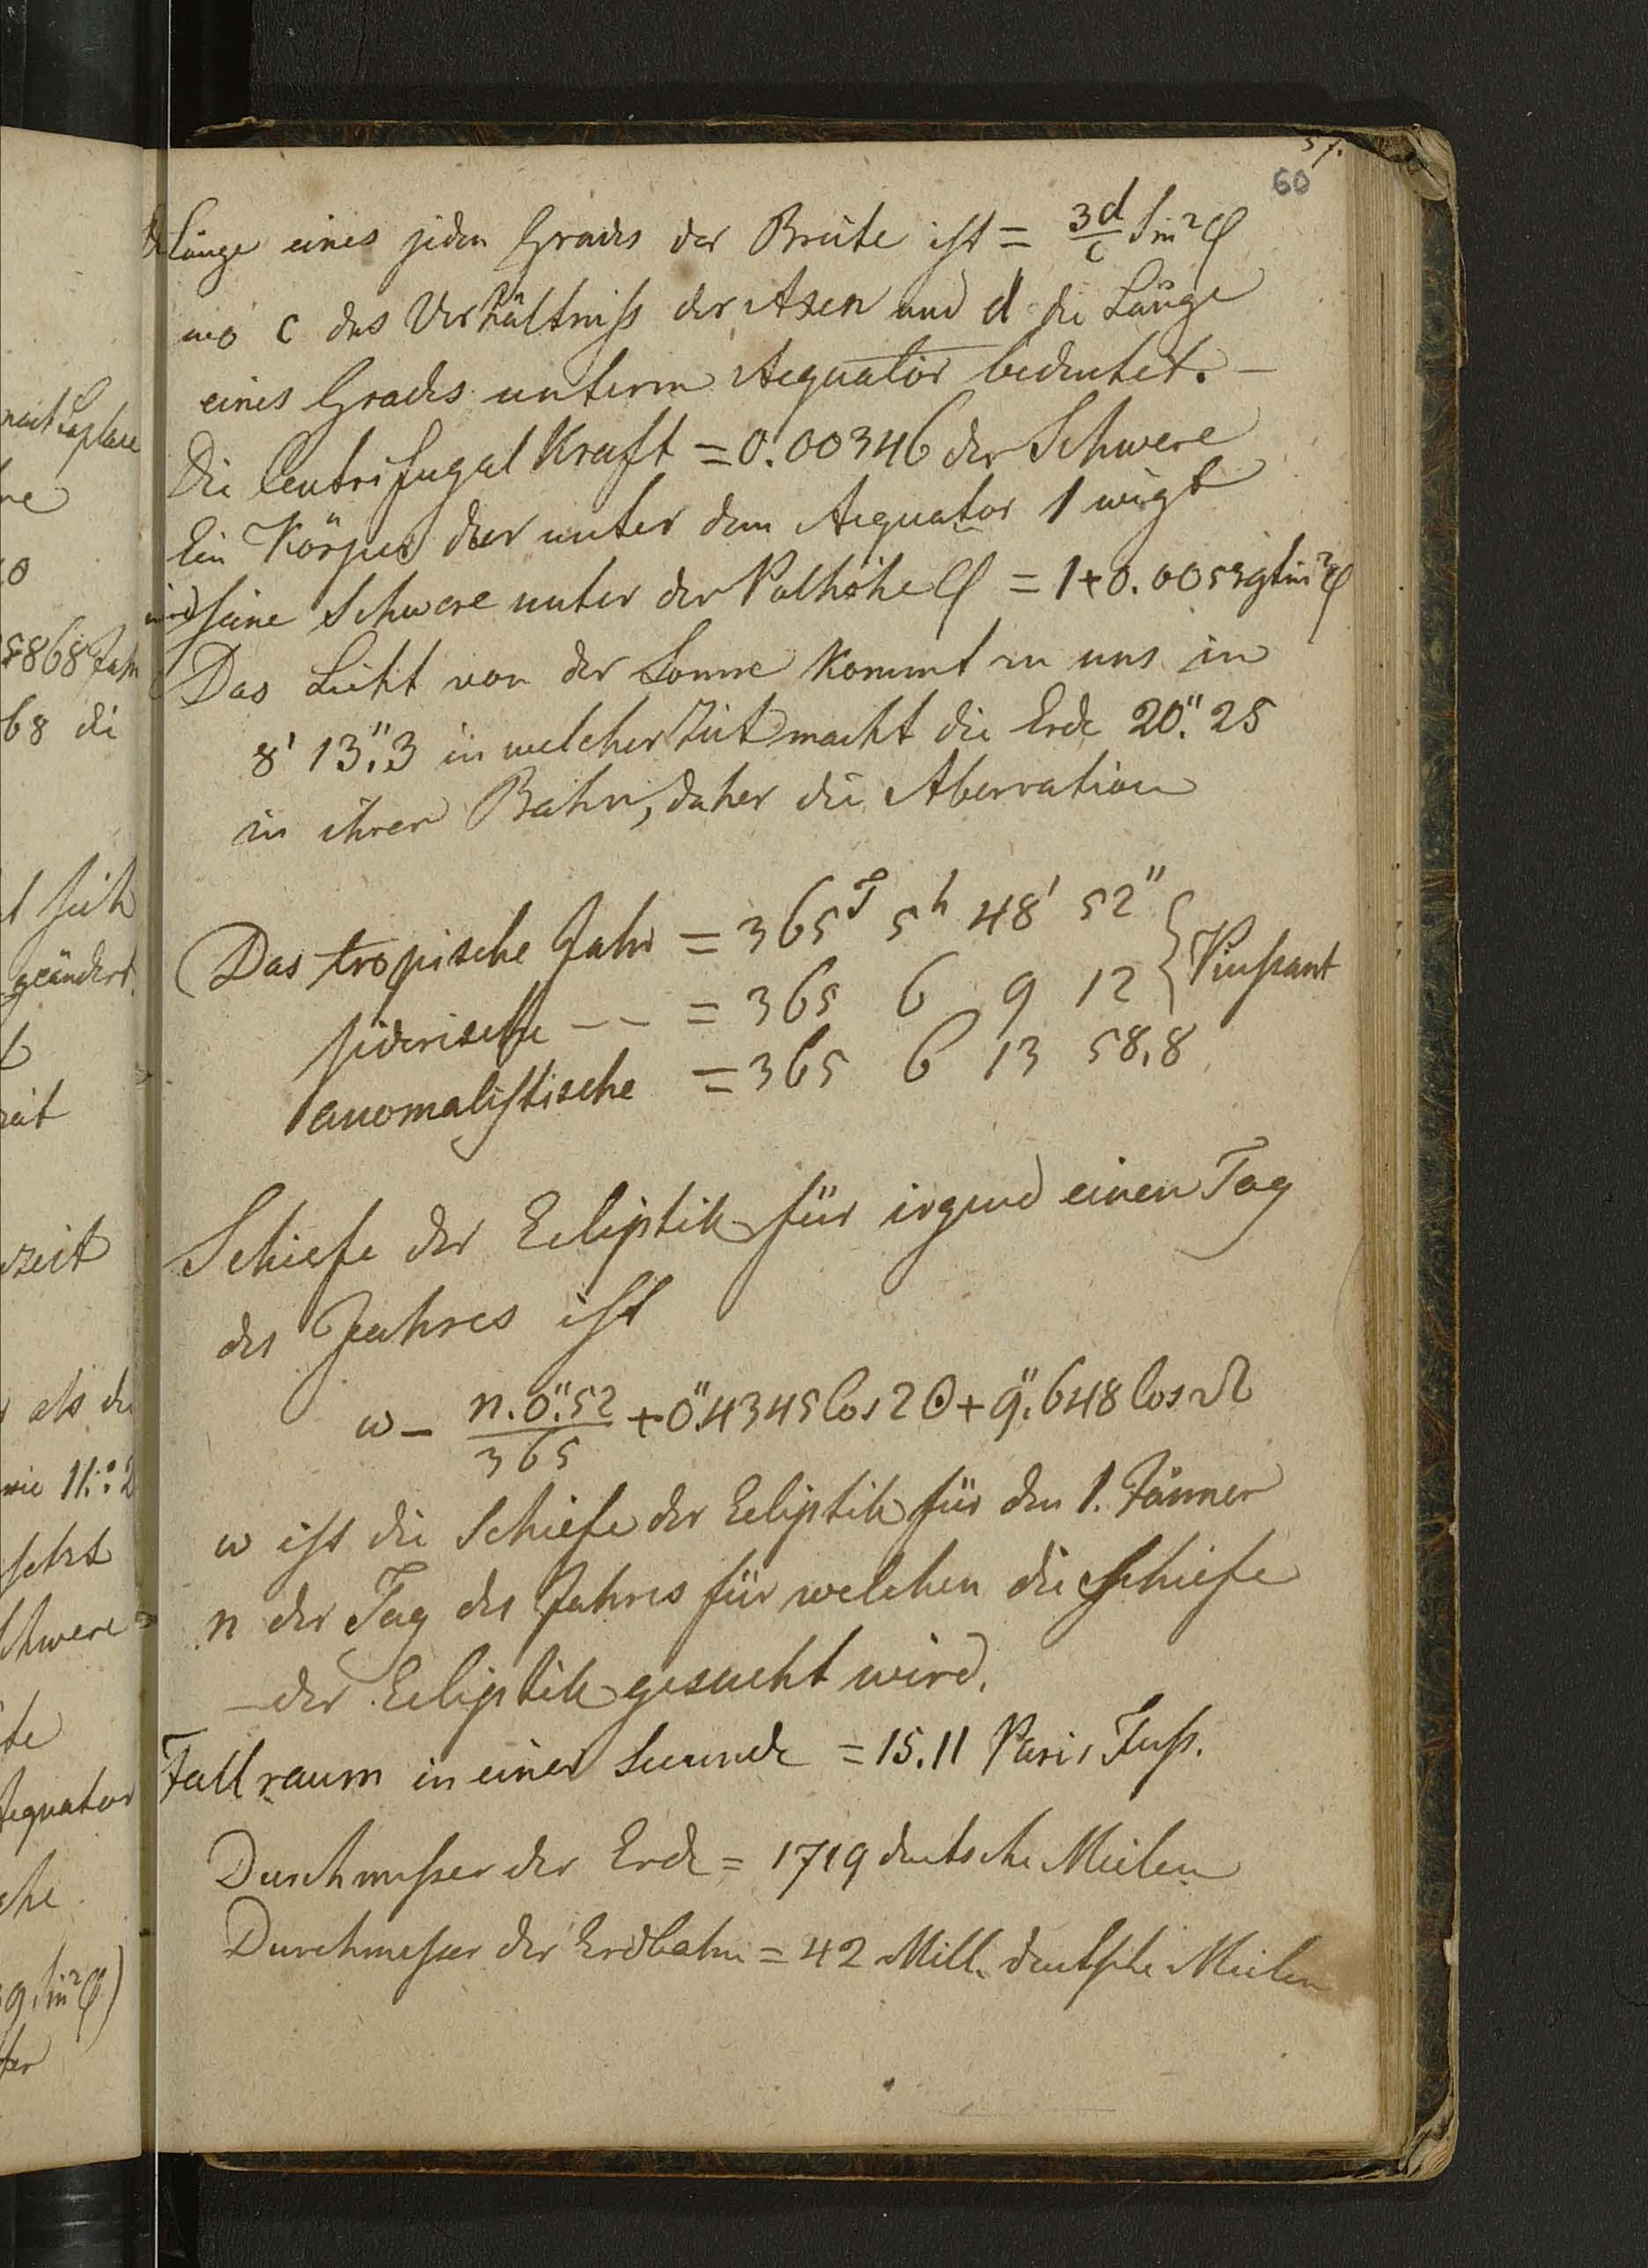 57.
60
Länge eines jeden Grades der Breite ist = 3d/c Sin²φ
wo c das Verhältniss der Axen und d die Länge
eines Grades unterm Aequator bedeutet. —
Die Centrifugal Kraft = 0.00346 der Schwere
Ein Körper der unter dem Aequator 1 wigt
wird seine Schwere unter der Polhöhe φ = 1+0.00539 Sin²φ
Das Licht von der Sonne kommt zu uns in
8' 13."3 in welcher Zeit macht die Erde 20."25
in ihrer Bahn, daher die Aberration
Das tropische Jahr = 365T 5h 48' 52"
siderische — — = 365 6 9 12 } Piussant
anomalistische = 365 6 13 58,8
Schiefe der Ecliptik für irgend einen Tag
des Jahres ist
w − n.0."52/365 + 0."4345 Cos 2☉ + 9."648 Cos ☊
w ist die Schiefe der Ecliptik für den 1. Jänner
n der Tag des Jahres für welchen die Schiefe
der Ecliptik gesucht wird.
Fallraum in einer Secunde = 15.11 Paris Fuß.
Durchmesser der Erde = 1719 deutsche Meilen
Durchmesser der Erdbahn = 42 Mill. deutsche Meilen
nach Laplace
5868 Jahr
68 die
sich
geändert
zeit
als die
wie 11:2
setzt
Schwere =
Aequator
9 Sin²φ)